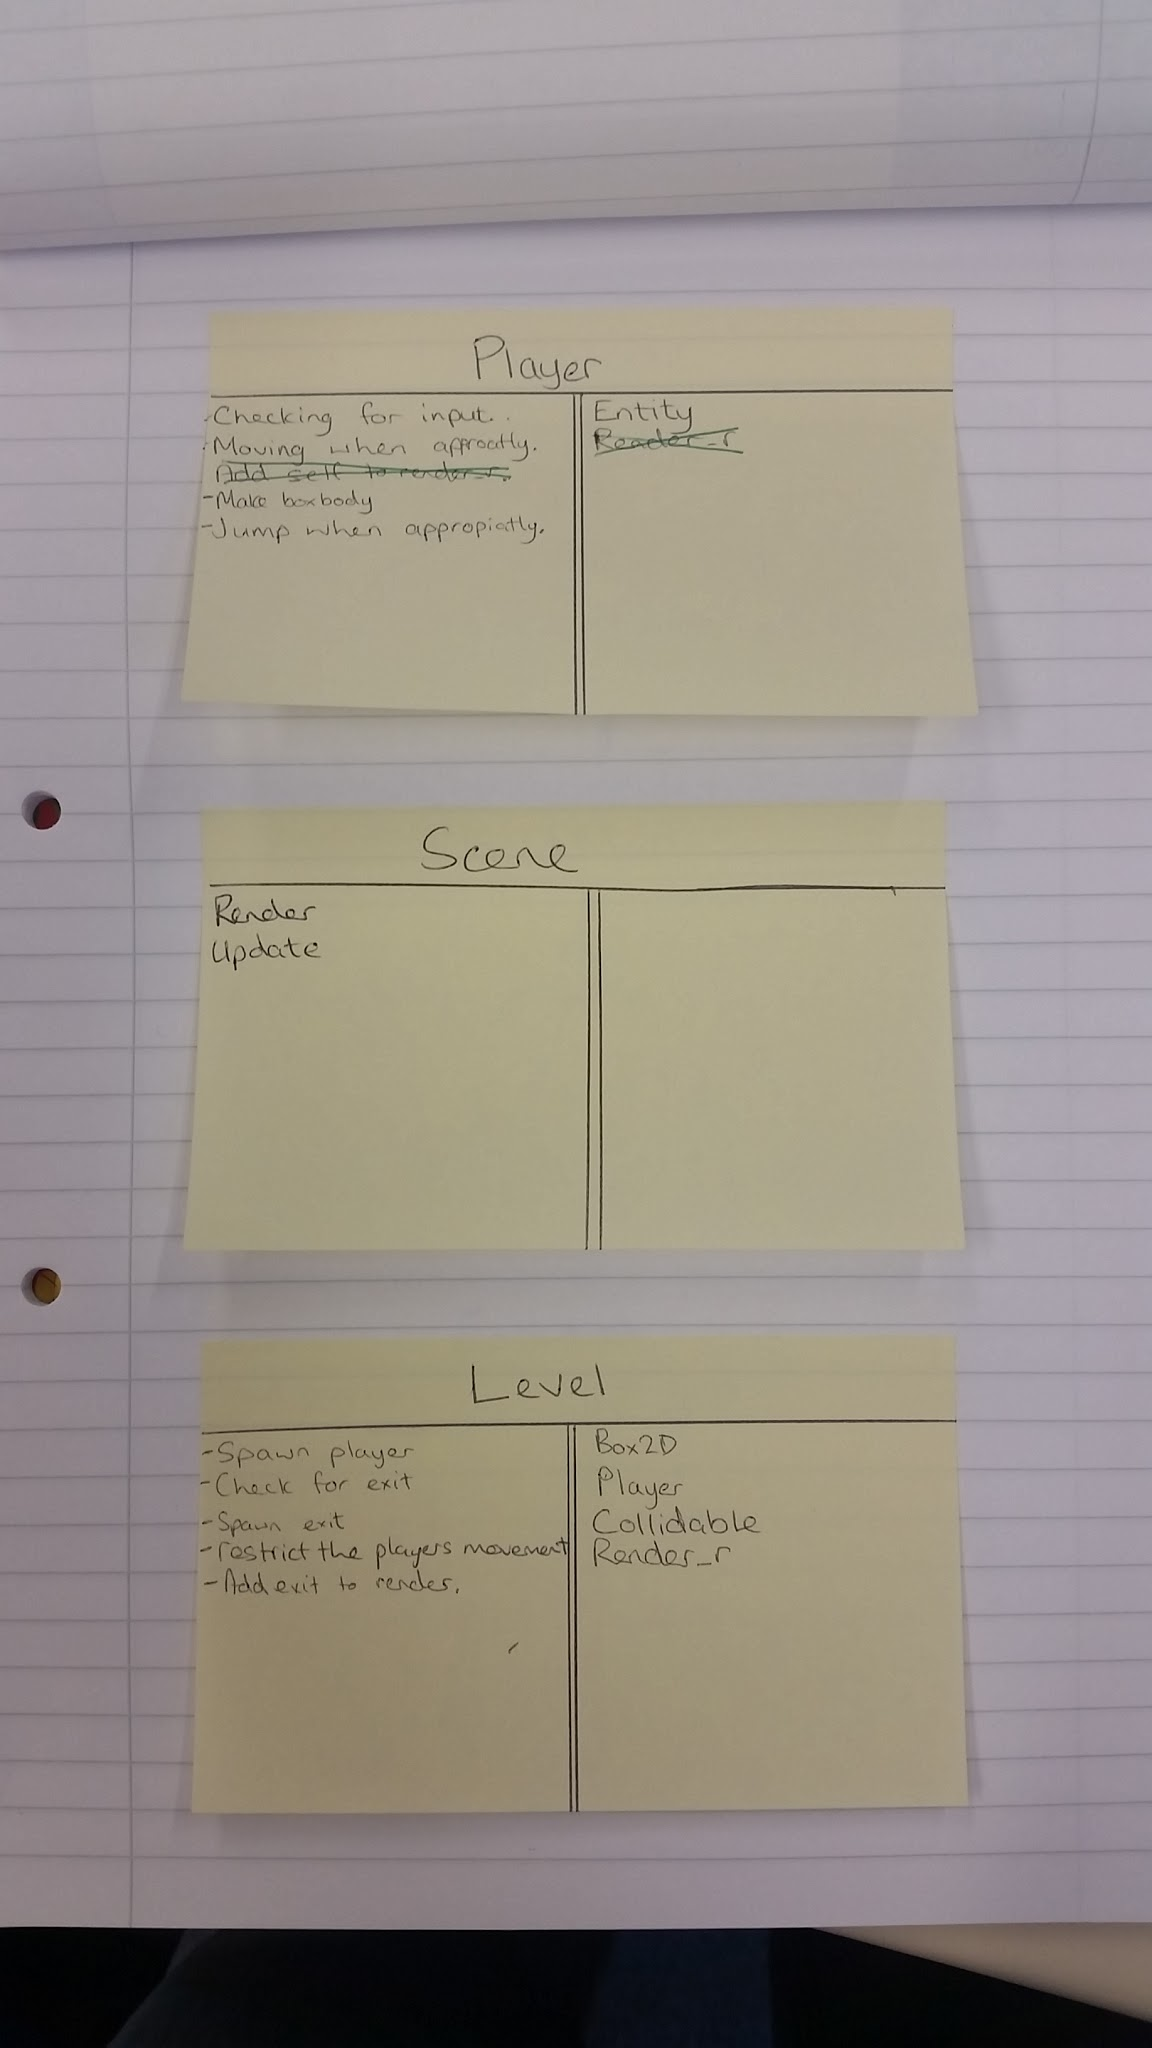 Player
- Checking for input..
- Moving when approatly.
Add self to render_r.
- Make boxbody
- Jump when appropiatly.
Entity
Render_r
Scene
Render
Update
Level
- Spawn player
- Check for exit
- Spawn exit
- restrict the players movement
- Add exit to render.
Box2D
Player
Collidable
Render_r